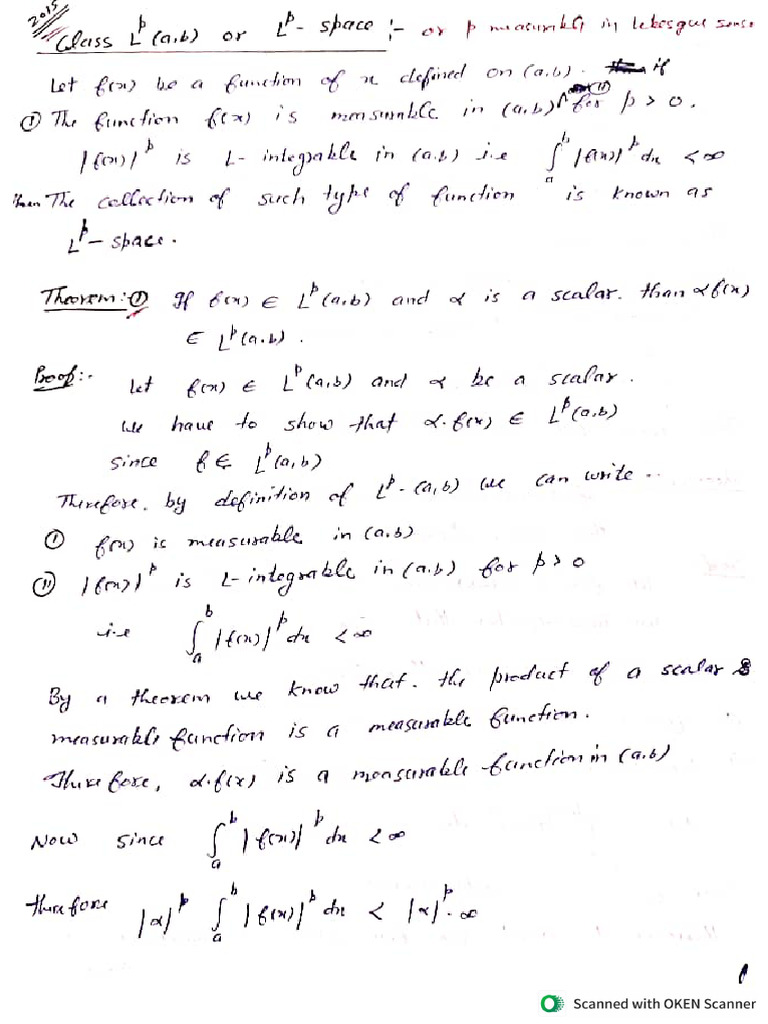 2015
Class L^p(a,b) or L^p- space :- or p measurable in lebesgue sense
Let f(x) be a function of x defined on (a,b). if
① The function f(x) is measurable in (a,b) (ii) for p > 0.
|f(x)|^p is L- integrable in (a,b) i.e ∫_a^b |f(x)|^p dx < ∞
then The collection of such type of function is known as
L^p- space.
Theorem:① If f(x) ∈ L^p(a,b) and α is a scalar. than αf(x)
∈ L^p(a,b).
Proof:- Let f(x) ∈ L^p(a,b) and α be a scalar.
We have to show that α.f(x) ∈ L^p(a,b)
since f ∈ L^p(a,b)
Therefore, by definition of L^p-(a,b) we can write..
① f(x) is measurable in (a,b)
② |f(x)|^p is L-integrable in (a,b) for p > 0
i.e ∫_a^b |f(x)|^p dx < ∞
By a theorem we know that. the product of a scalar &
measurable function is a measurable function.
Therefore, α.f(x) is a measurable function in (a,b)
Now since ∫_a^b |f(x)|^p dx < ∞
therefore |α|^p ∫_a^b |f(x)|^p dx < |α|^p. ∞
Scanned with OKEN Scanner